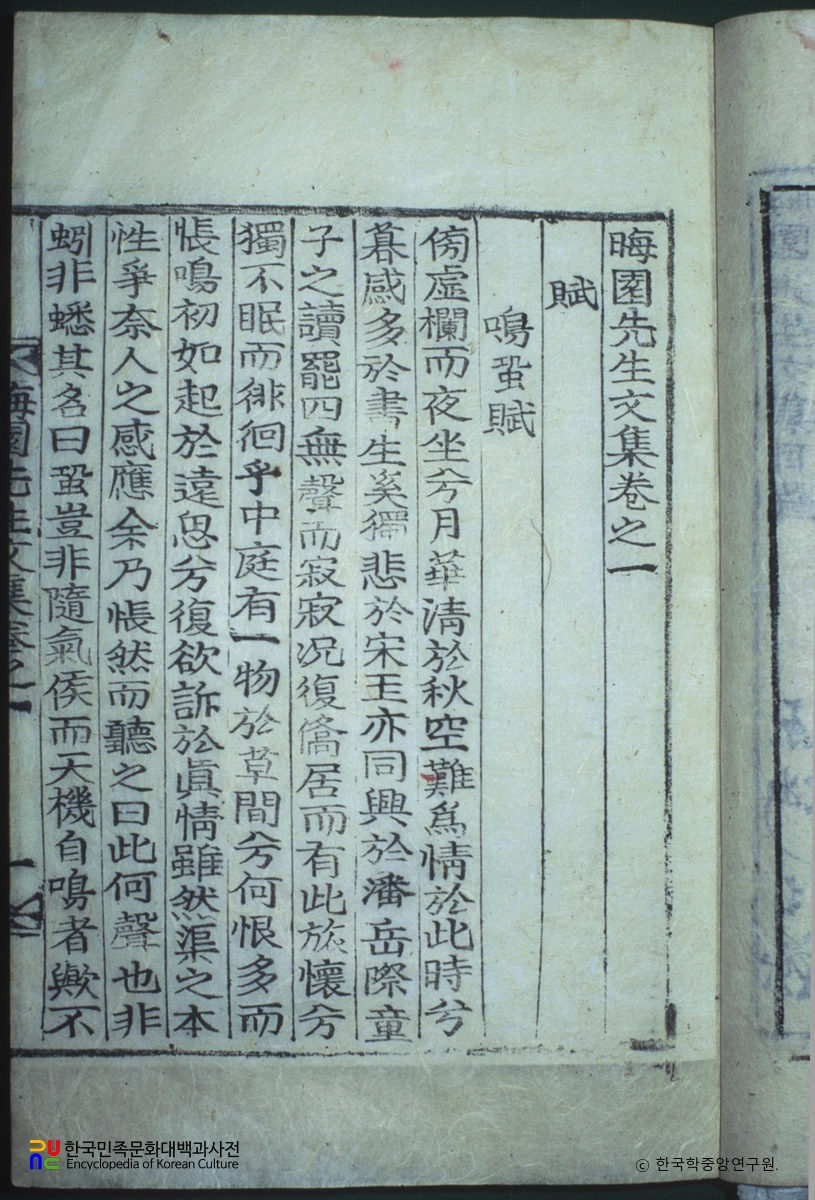 晦園先生文集卷之一
賦
鳴蛩賦
傍虛欄而夜坐兮月華淸於秋空難爲情於此時兮
暮感多於書生奚獨悲於宋玉亦同興於潘岳際童
子之讀罷四無聲而寂寂况復僑居而有此旅懷兮
獨不眠而徘徊乎中庭有一物於草間兮何恨多而
悵鳴初如起於遠思兮復欲訴於眞情雖然渠之本
性爭奈人之感應余乃悵然而聽之曰此何聲也非
蚓非蟋其名曰蛩豈非隨氣候而天機自鳴者歟不
晦園先生文集卷之一
한국민족문화대백과사전
Encyclopedia of Korean Culture
© 한국학중앙연구원.